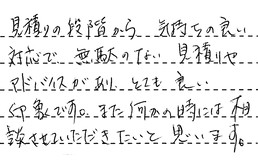 見積りの段階から 気持ちの良い
対応で、無駄のない 見積りや
アドバイスがあり、とても 良い
印象です。また何かの時には 相
談させていただきたいと 思います。